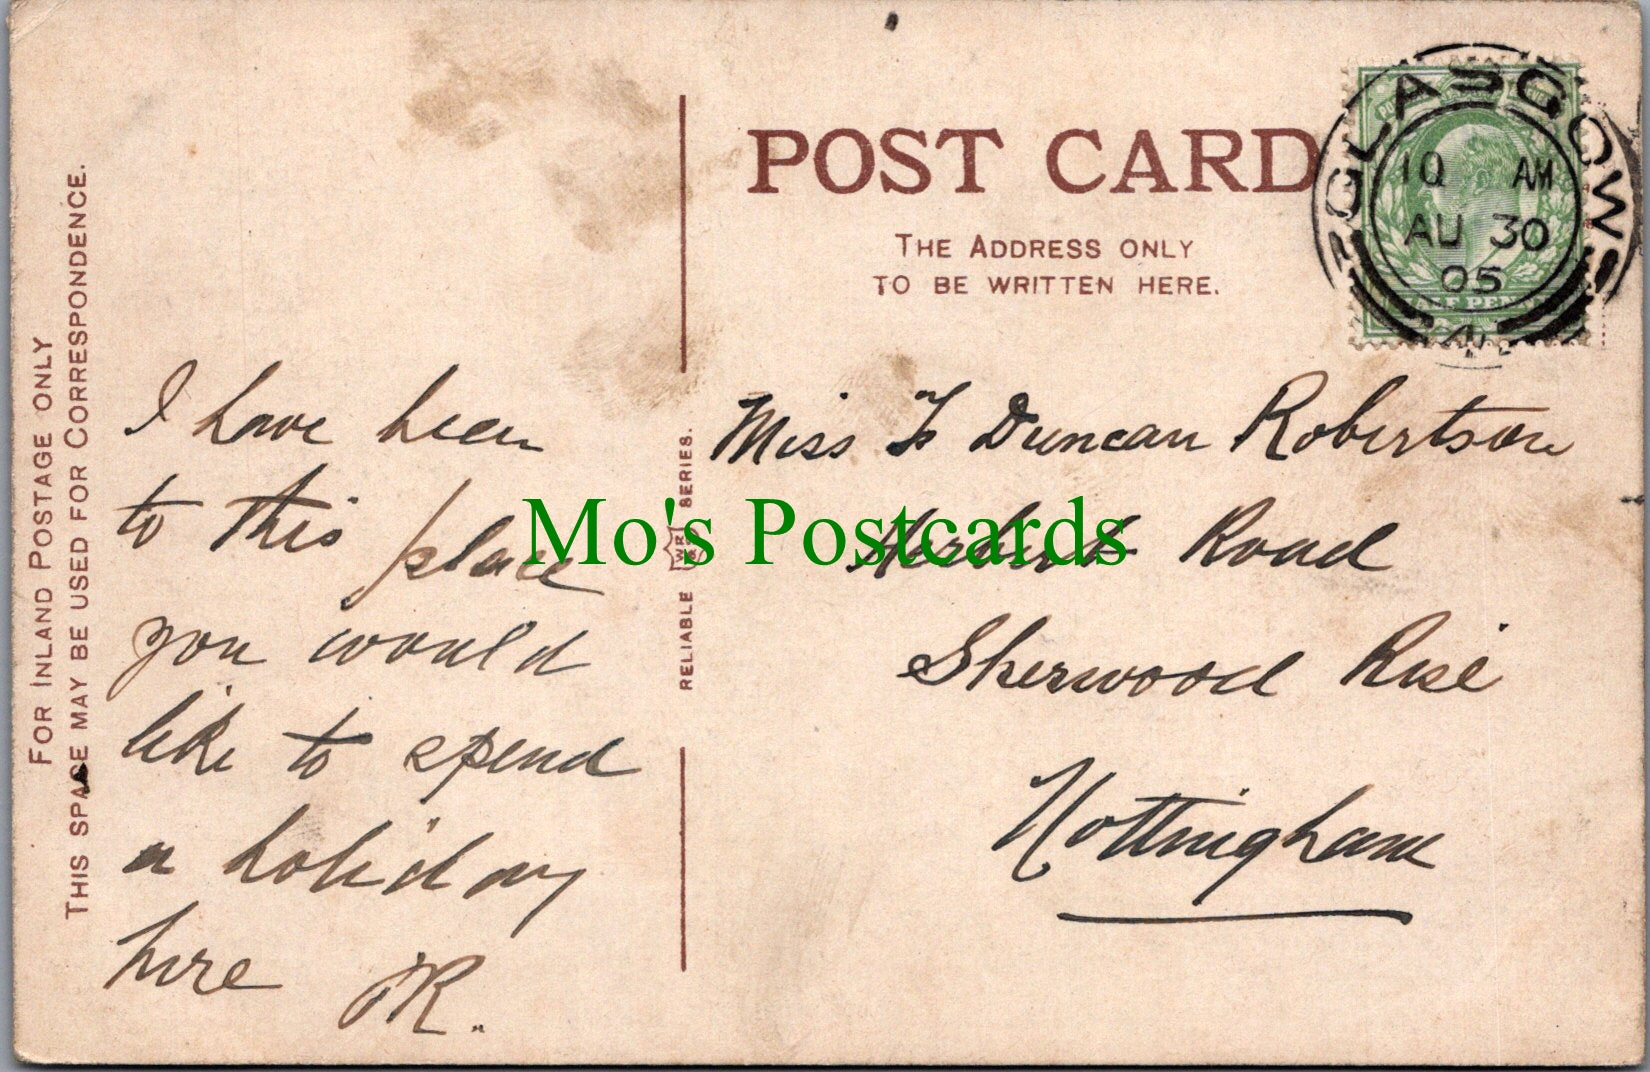 FOR INLAND POSTAGE ONLY
THIS SPACE MAY BE USED FOR CORRESPONDENCE.
I have been
to this place
you would
like to spend
a holiday
here JR.
RELIABLE WR&S SERIES.
POST CARD
THE ADDRESS ONLY
TO BE WRITTEN HERE.
GLASGOW
10 AM
AU 30
05
HALF PENNY
Miss F Duncan Robertson
Herbert Road
Sherwood Rise
Nottingham
Mo's Postcards